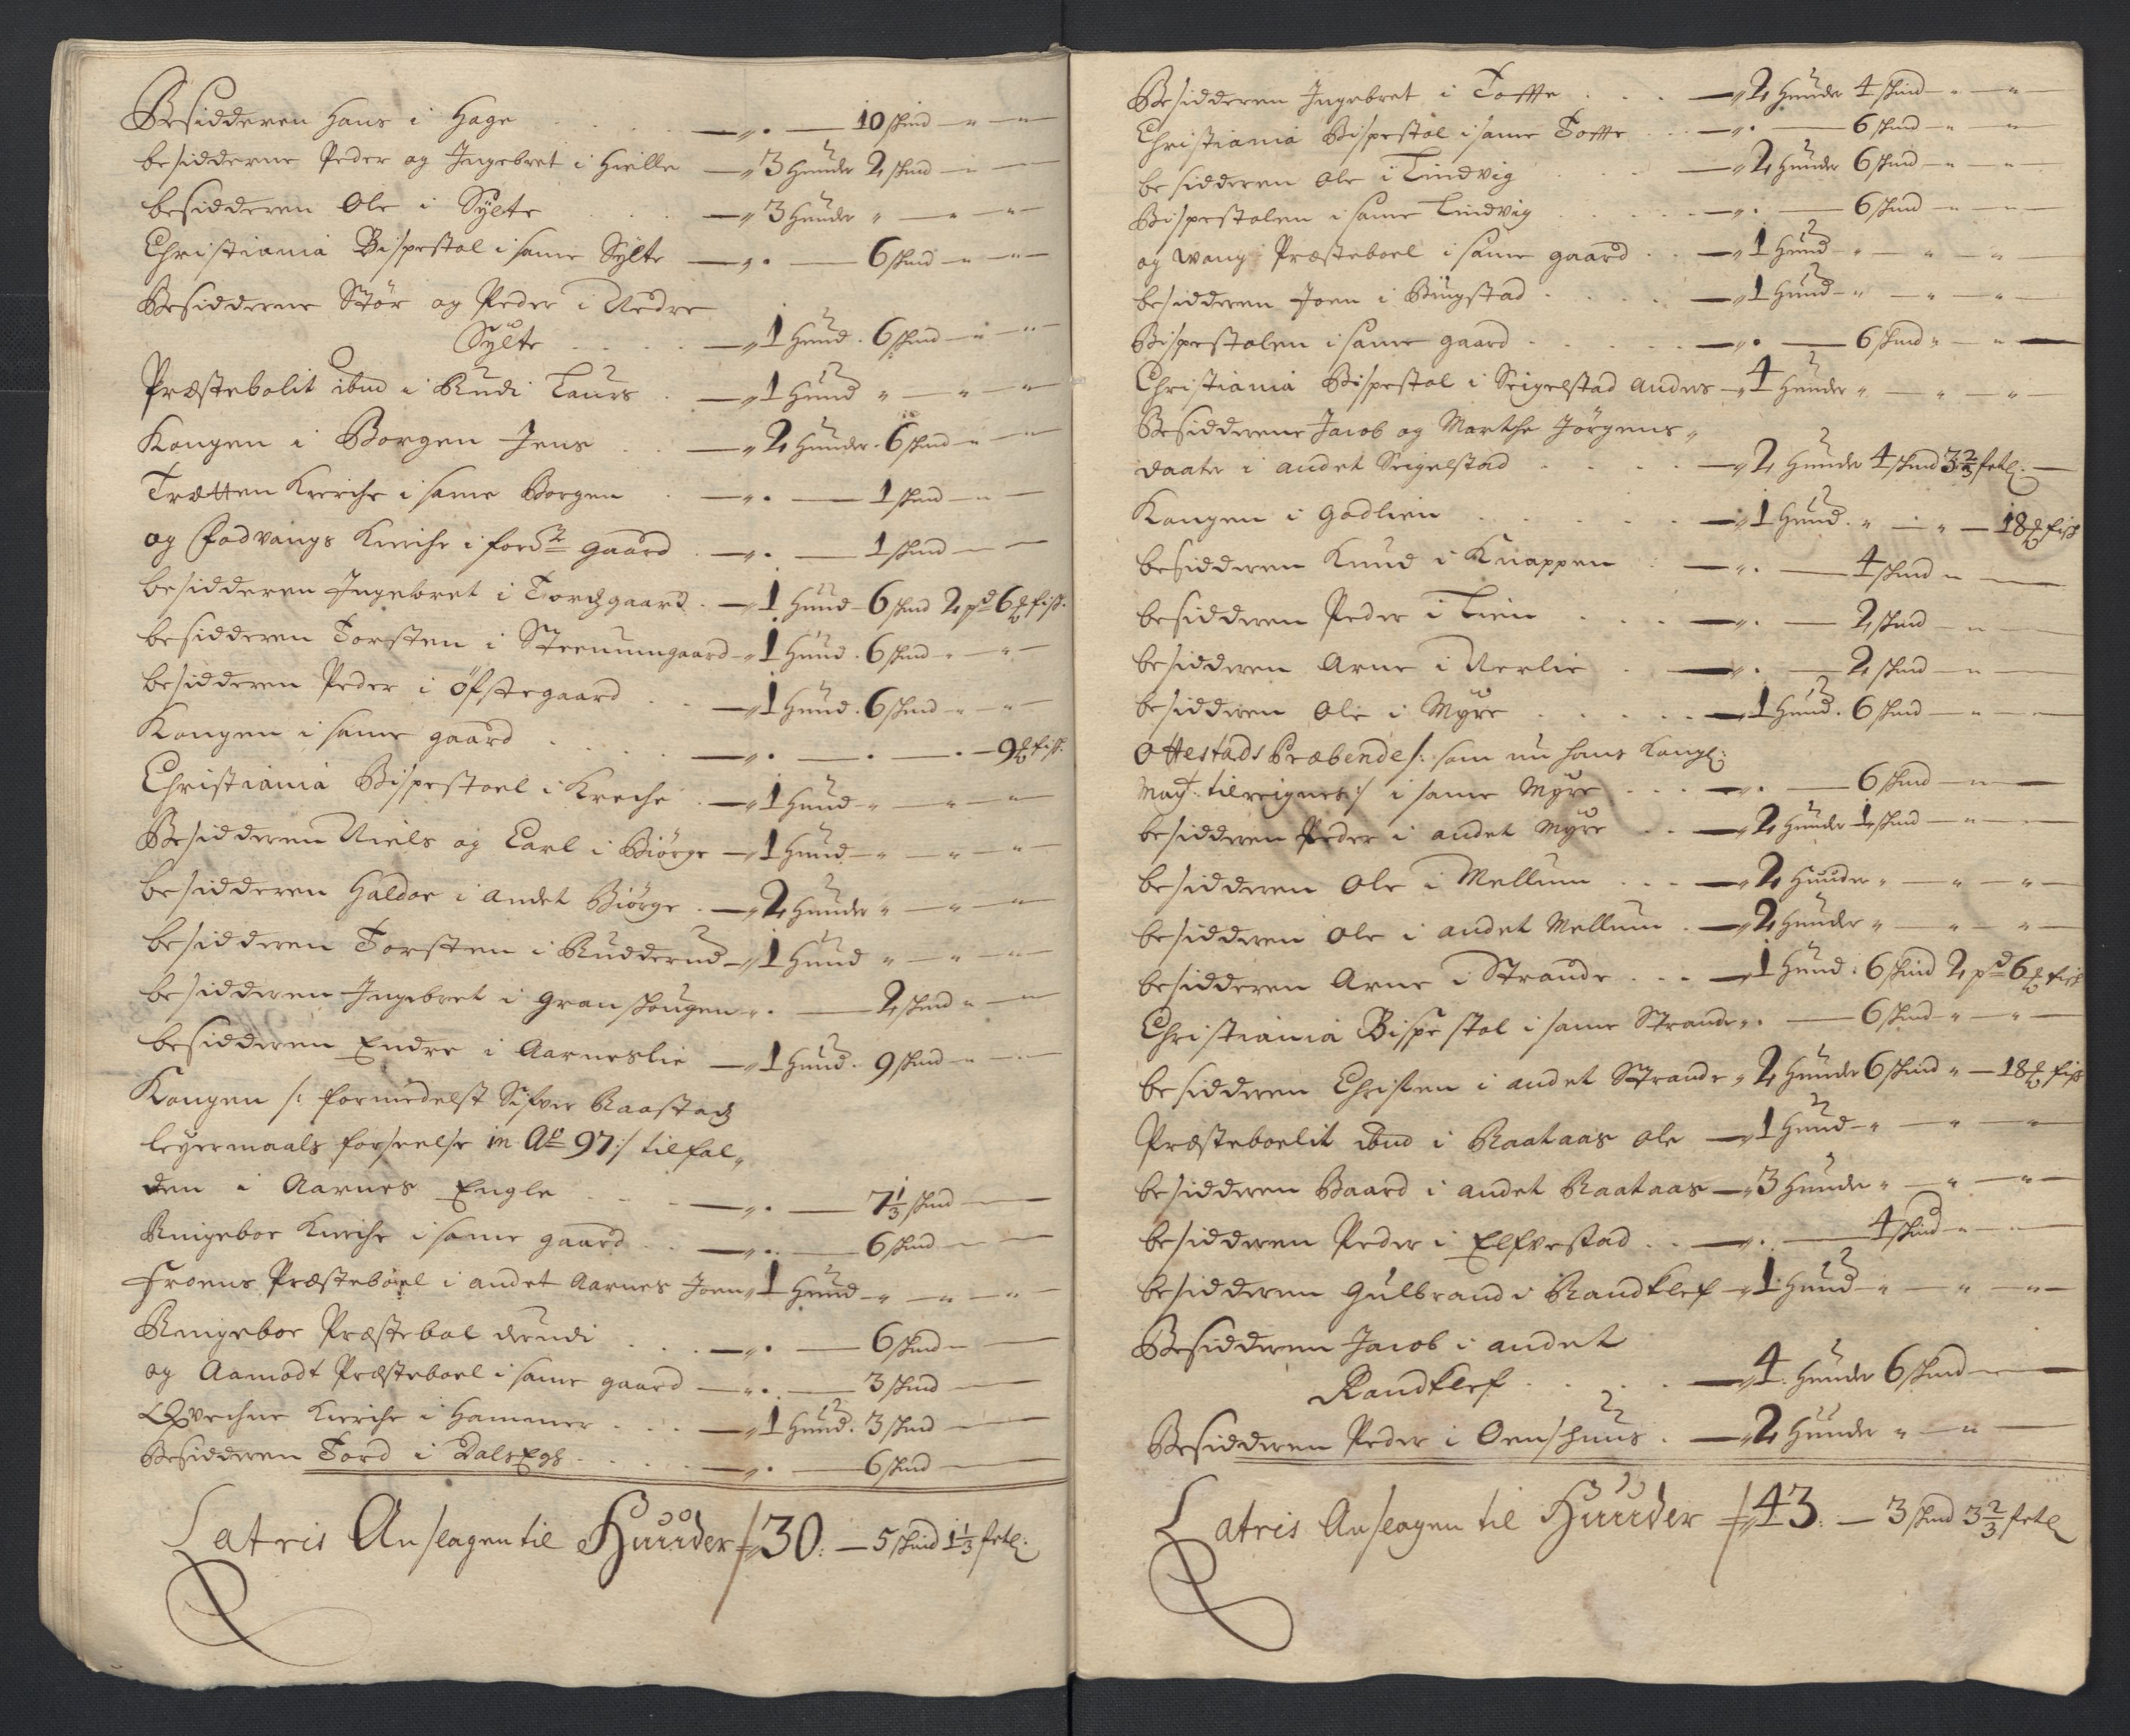 Besidderen Hans i Hage . . . . — „ . — 10 skind — „ —
besidderne Peder og Ingebret i Hielle — „ 3 Hunder 2 skind — „ —
besidderen Ole i Sylte . . . — „ 3 Hunder „ — „ —
Christiania Bispestol i same Sylte — „ . — 6 skind — „ —
Besidderne Stor og Peder i Nedre
Sylte . . . — „ 1 Hund . 6 skind — „ —
Præstebolit ibnd i Rudi Laurs . — „ 1 Hund „ — „ —
Kongen i Borgen Jens . . — „ 2 Hunder . 6 skind — „ —
Trætten Kierche i same Borgen . — „ . — 1 skind — „ —
og Fodvangs Kierche i forde gaard . — „ . — 1 skind — „ —
besidderen Ingebret i Tordzgaard . — „ 1 Hund — 6 skind 2 pd 6 ℔ fisk.
besidderen Torsten i Steenumgaard — „ 1 Hund . 6 skind — „ —
besidderen Peder i Øfstegaard . . — „ 1 Hund . 6 skind — „ —
Kongen i same gaard . . . . — „ . — . — . — 9 ℔ fisk.
Christiania Bispestoel i Kreche . — „ 1 Hund — „ — „ —
Besidderen Niels og Carl i Biørge — „ 1 Hund — „ — „ —
besidderen Haldor i andet Biørge . — „ 2 Hunder „ — „ —
besidderen Torsten i Rudderud — „ 1 Hund „ — „ —
besidderen Ingebret i Granskougen — „ . — 2 skind — „ —
besidderen Endre i Aarneslie — „ 1 Hund . 9 skind — „ —
Kongen /: formedelst Sifver Raastadz
leyermaals forseelse in Ao 97 :/ tilfal„
den i Aarnes Engle . . . — „ . — 7 1/3 skind —
Ringeboe Kierche i same gaard . . — „ . — 6 skind — „ —
Froens Præsteboel i andet Aarnes Joen „ 1 Hund — „ — „ —
Ringeboe Præstebol derudi . . . — „ . — 6 skind — „ —
og Aamodt Præsteboel i same gaard — „ . — 3 skind —
Qvechne Kierche i Hammer . . . — „ 1 Hund . 3 skind —
Besidderen Tord i DalsEgh . . . . — „ . — 6 skind —
Latris Anslagen til Hunder 30 . — 5 skind 1 1/3 fetl.
Besidderen Ingebret i Tofte . . . — „ 2 Hunder 4 skind — „ —
Christiania Bispestol i same Tofte . . — „ . — 6 skind — „ —
besidderen Ole i Lindvig . . . — „ 2 Hunder 6 skind — „ —
Bispestolen i same Lindvig . . . . — „ . — 6 skind — „ —
og Wang Præsteboel i same gaard . . — „ 1 Hund — „ — „ —
besidderen Joen i Bingstad . . . . — „ 1 Hund — „ — „ —
Bispestolen i same gaard . . . . . — „ . — 6 skind „ — „ —
Christiania Bispestol i Seigelstad Anders — „ 4 Hunder „ — „ — „ —
Besidderene Jacob og Marthe Jørgens„
daater i andet Seigelstad . . . . — „ 2 Hunder 4 skind 3 2/3 fetl. —
Kongen i Godlien . . . . . — „ 1 Hund . „ — „ — 18 ℔ fisk
besidderen Knud i Knappen . — „ . — 4 skind „ —
besidderen Peder i Lien . . . . — „ . — 2 skind — „ —
besidderen Arne i Nerlie . — „ . — 2 skind — „ —
besidderen Ole i Myre . . . . . — „ 1 Hund . 6 skind — „ —
Ottestads Præbende /: som nu hans Kongl:
Mayt: tilreignes :/ i same Myre . . . — „ . — 6 skind — „ —
besidderen Peder i andet Myre . . — „ 2 Hunder 1 skind — „ —
besidderen Ole i Mellum . . . — „ 2 Hunder „ — „ — „ —
besidderen Ole i andet Mellum . — „ 2 Hunder „ — „ — „ —
besidderen Arne i Strande . . . — „ 1 Hund . 6 skind 2 pd 6 ℔ fisk
Christiania Bispestol i same Strande „ . — 6 skind — „ — „ —
besidderen Christen i andet Strande „ 2 Hunder 6 skind „ — 18 ℔ fisk
Præsteboelit ibnd i Raataas Ole — „ 1 Hund — „ — „ —
besidderen Baard i andet Raataas — „ 3 Hunder „ — „ — „ —
besidderen Peder i Elfvestad . . — „ . — 4 skind — „ —
besidderen Gulbrand i Randklef — „ 1 Hund — „ — „ —
Besidderen Jacob i andet
Randklef . . . . — „ 4 . Hunder 6 skind — „ —
Besidderen Peder i Oenshuus . — „ 2 Hunder „ — „ —
Latris Anslagen til Huuder 43 . — 3 skind 3 2/3 fetl